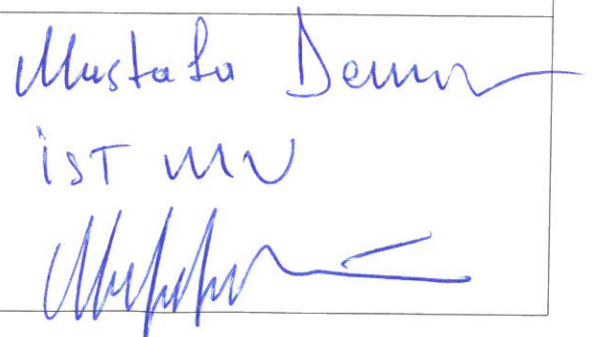 Mustafa Demir
İST MV